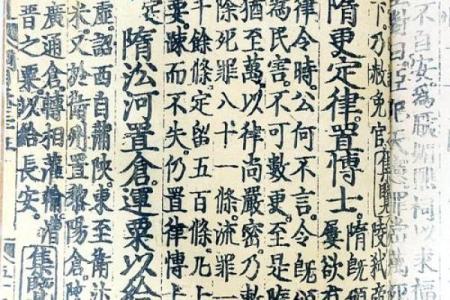 不自安爲厭媚醮祠以求福
下乃赦免官集覽陵弑帝
隋更定律置博士。隋旣
屢欲有
律令時。公何不言。令旣
爲民害。不可數更。至是隋
猶至萬。以律尚嚴密。乃敕
除死罪八十一條。流罪一
千餘條。定留五百條。凡十
要。疎而不失。仍置律博士
定
隋沿河置倉運粟以給
虛。詔西自蒲陝。東至衛汴
米。又於衛州置黎陽倉。陝
廣通倉。轉相灌輸。漕
晉之粟。以給長安。集覽